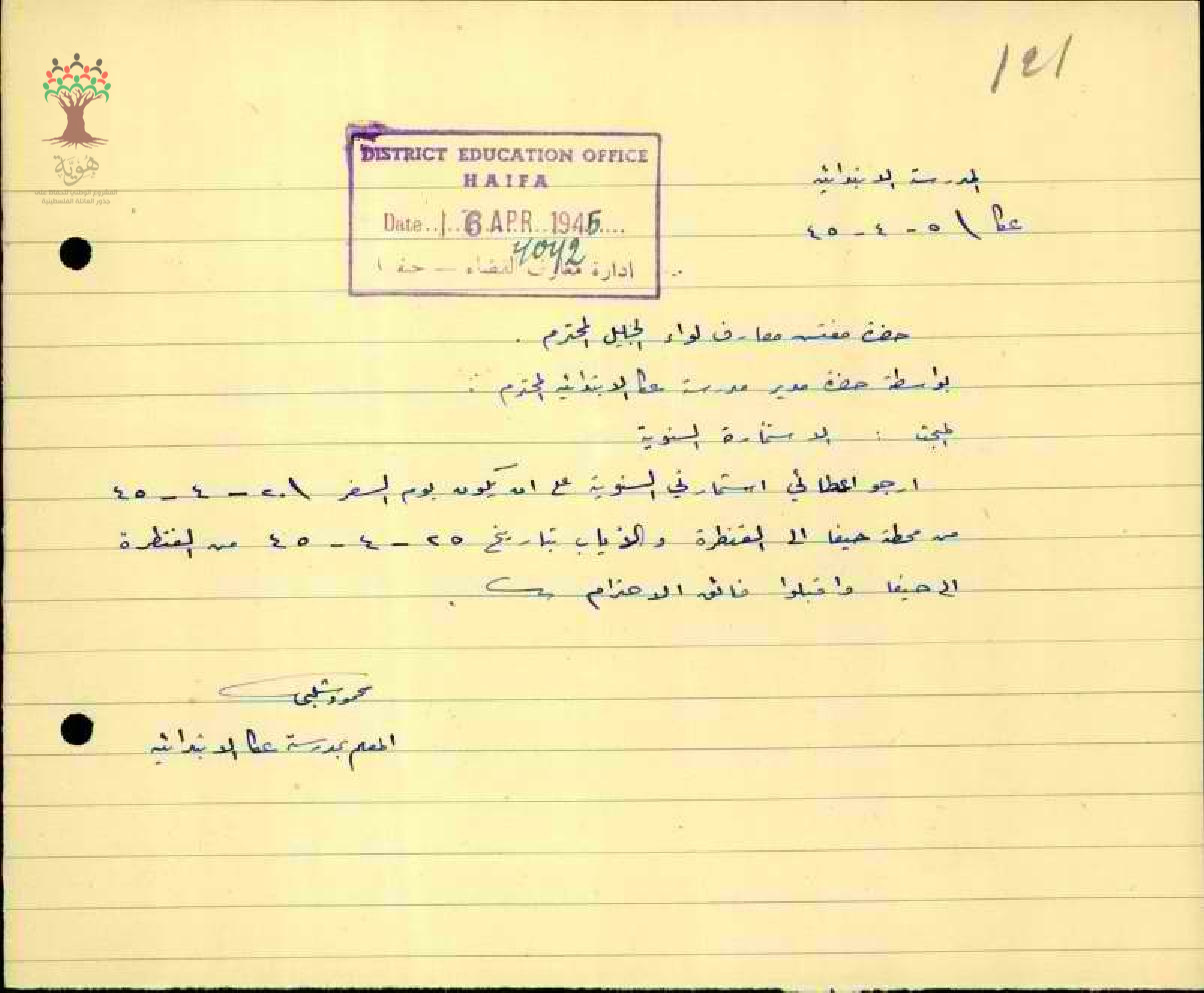 121
هوية
المشروع الوطني للحفاظ على
جذور العائلة الفلسطينية
DISTRICT EDUCATION OFFICE
HAIFA
Date 6 APR 1945
4042
ادارة معارف القضاء — حيفا
المدرسة الابتدائيه
عكا \ ٥ - ٤ - ٤٥
حضرة مفتش معارف لواء الجليل المحترم .
بواسطة حضرة مدير مدرسة عكا الابتدائيه المحترم :
المبحث : الاستمارة السنوية
ارجو اعطائي استمارتي السنوية على ان يكون يوم السفر \ ٢٠ - ٤ - ٤٥
من محطة حيفا الى القنطرة والاياب بتاريخ ٢٥ - ٤ - ٤٥ من القنطرة
الى حيفا واقبلوا فائق الاحترام
محمود شلبي
المعلم بمدرسة عكا الابتدائيه